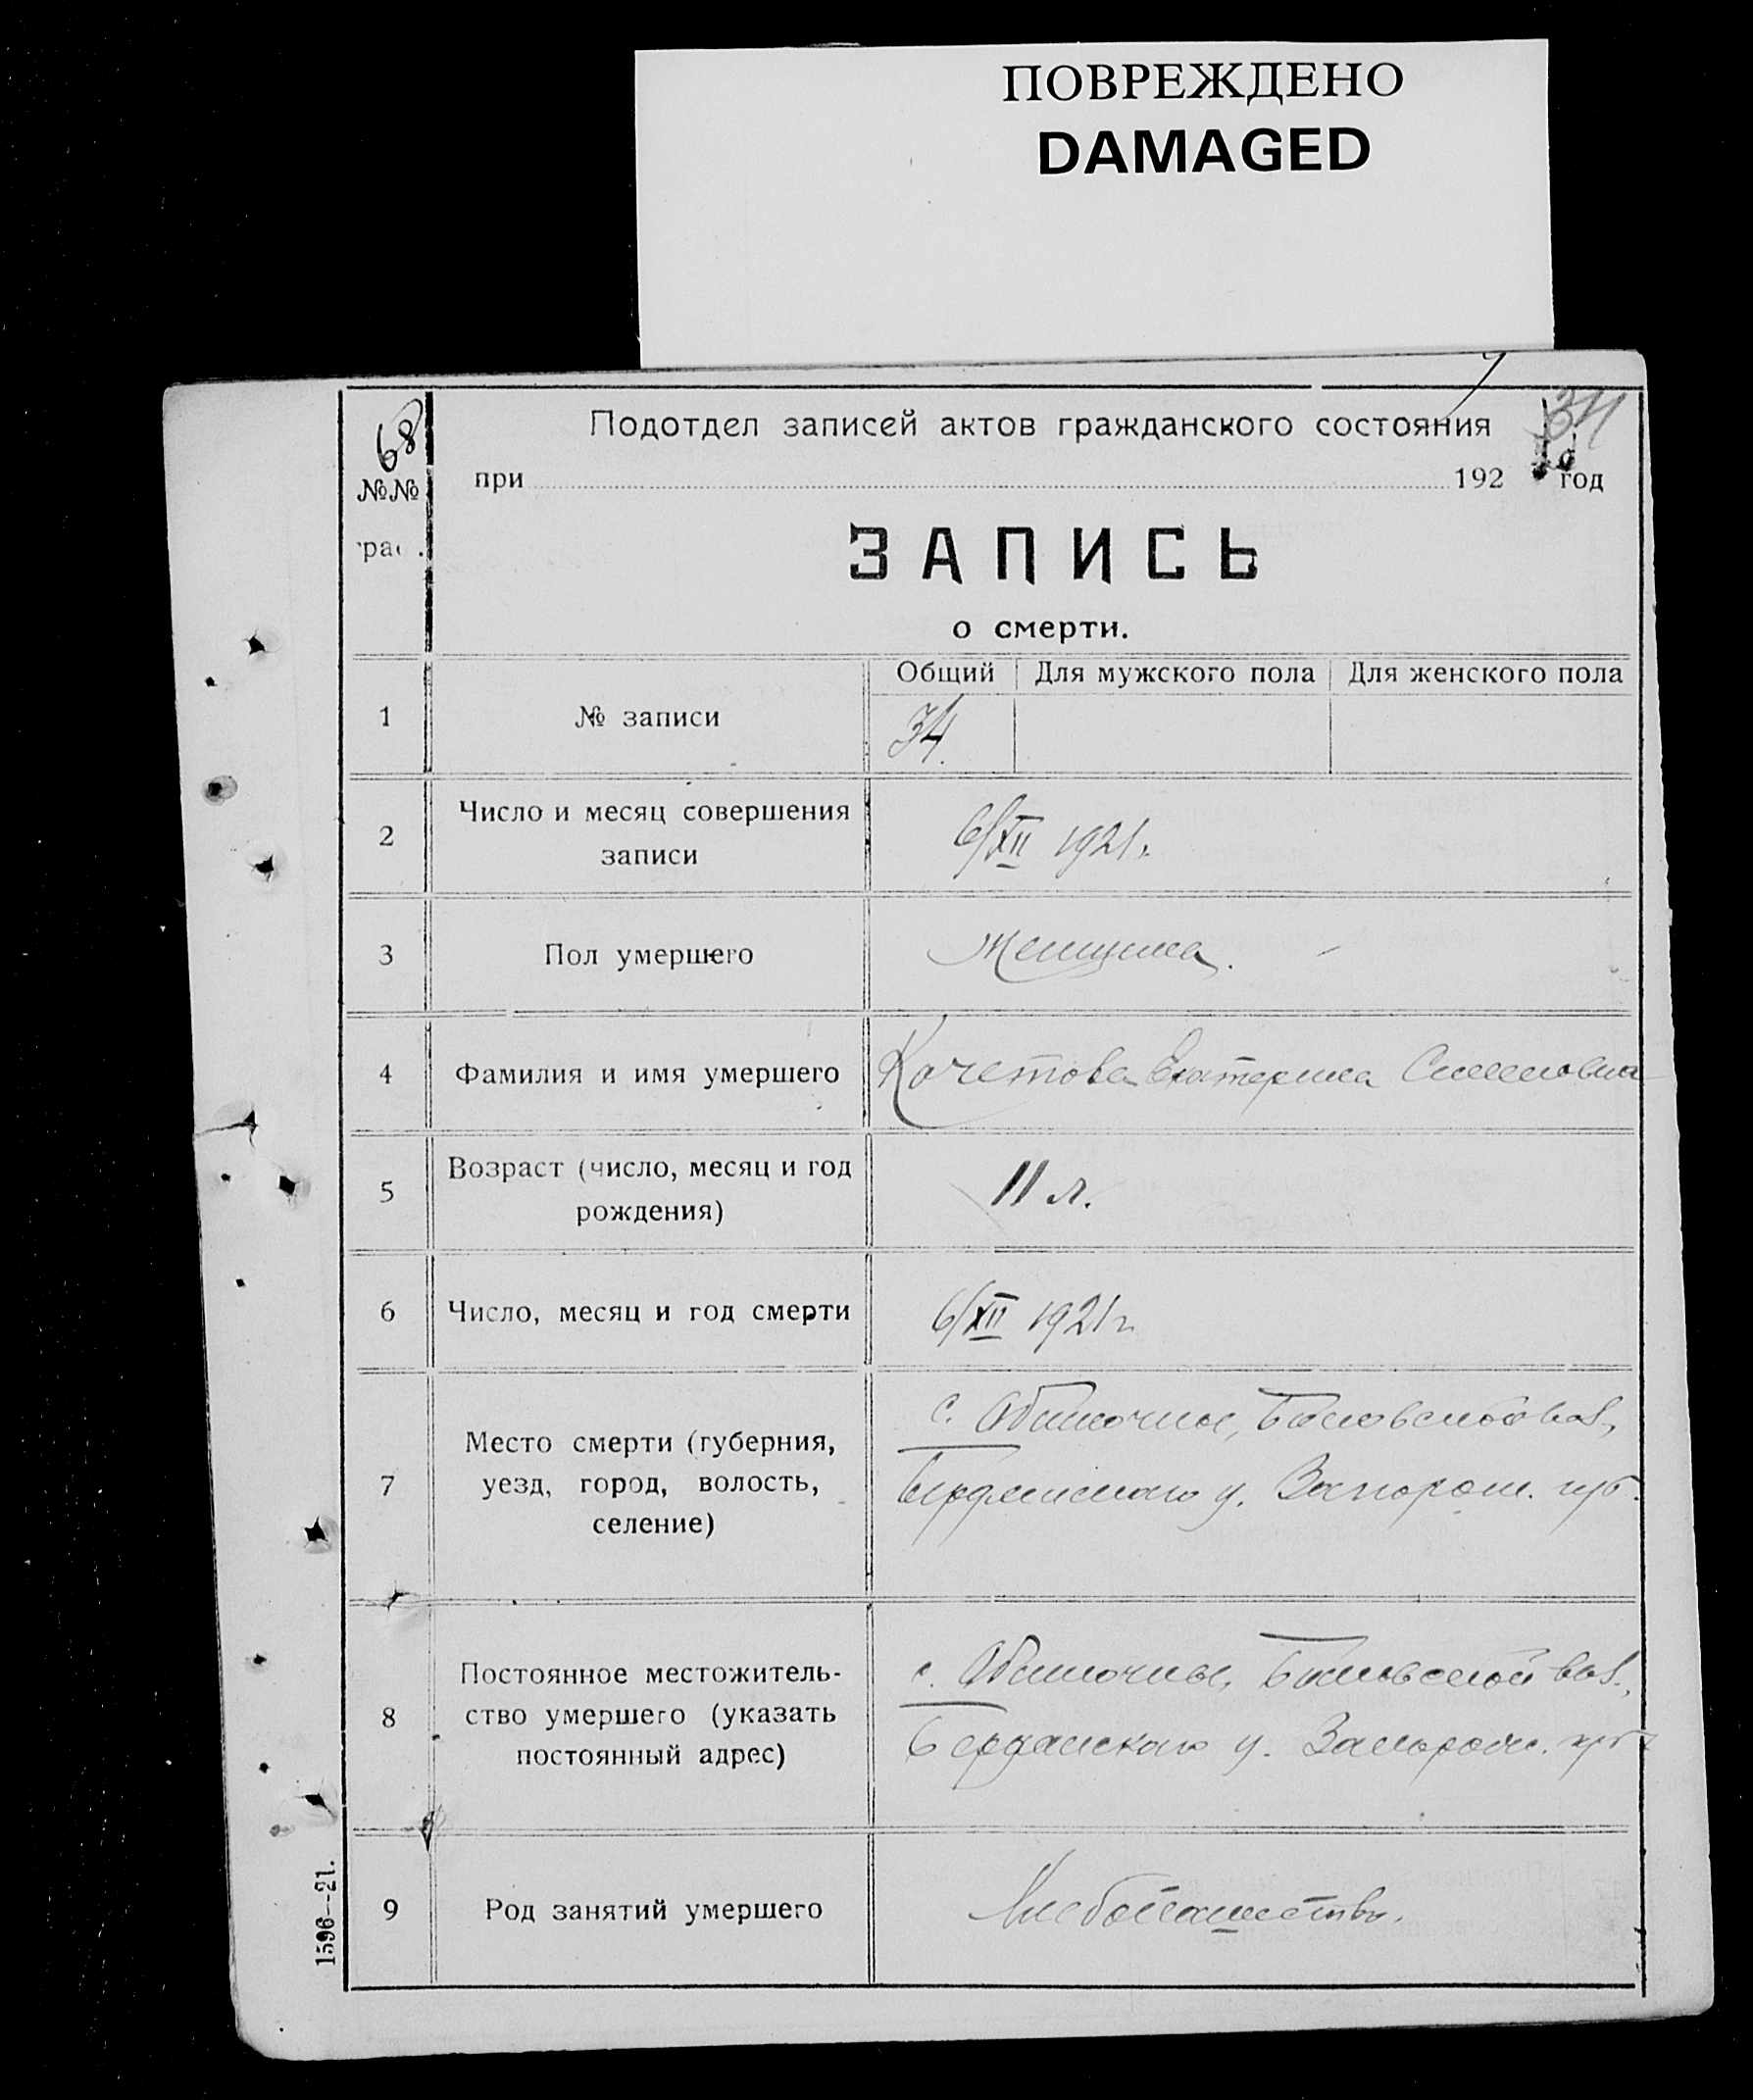 ПОВРЕЖДЕНО
DAMAGED
68
34
Подотдел записей актов гражданского состояния
№№
при 192 год
ЗАПИСЬ
о смерти.
Общий Для мужского пола Для женского пола
1 № записи 34.
2 Число и месяц совершения
записи
6/XII 1921 г.
3 Пол умершего Женщина.
4 Фамилия и имя умершего Кочетова Екатерина Семеновна
5 Возраст (число, месяц и год
рождения)
11 л.
6 Число, месяц и год смерти 6/XII 1921 г.
7 Место смерти (губерния,
уезд, город, волость,
селение)
с. Обиточное, вол.,
Бердянского у. Запорож. губ.
8 Постоянное местожитель-
ство умершего (указать
постоянный адрес)
с. Обиточное, вол.,
Бердянского у. Запорож. губ.
9 Род занятий умершего Хлебопашество.
1596—21.